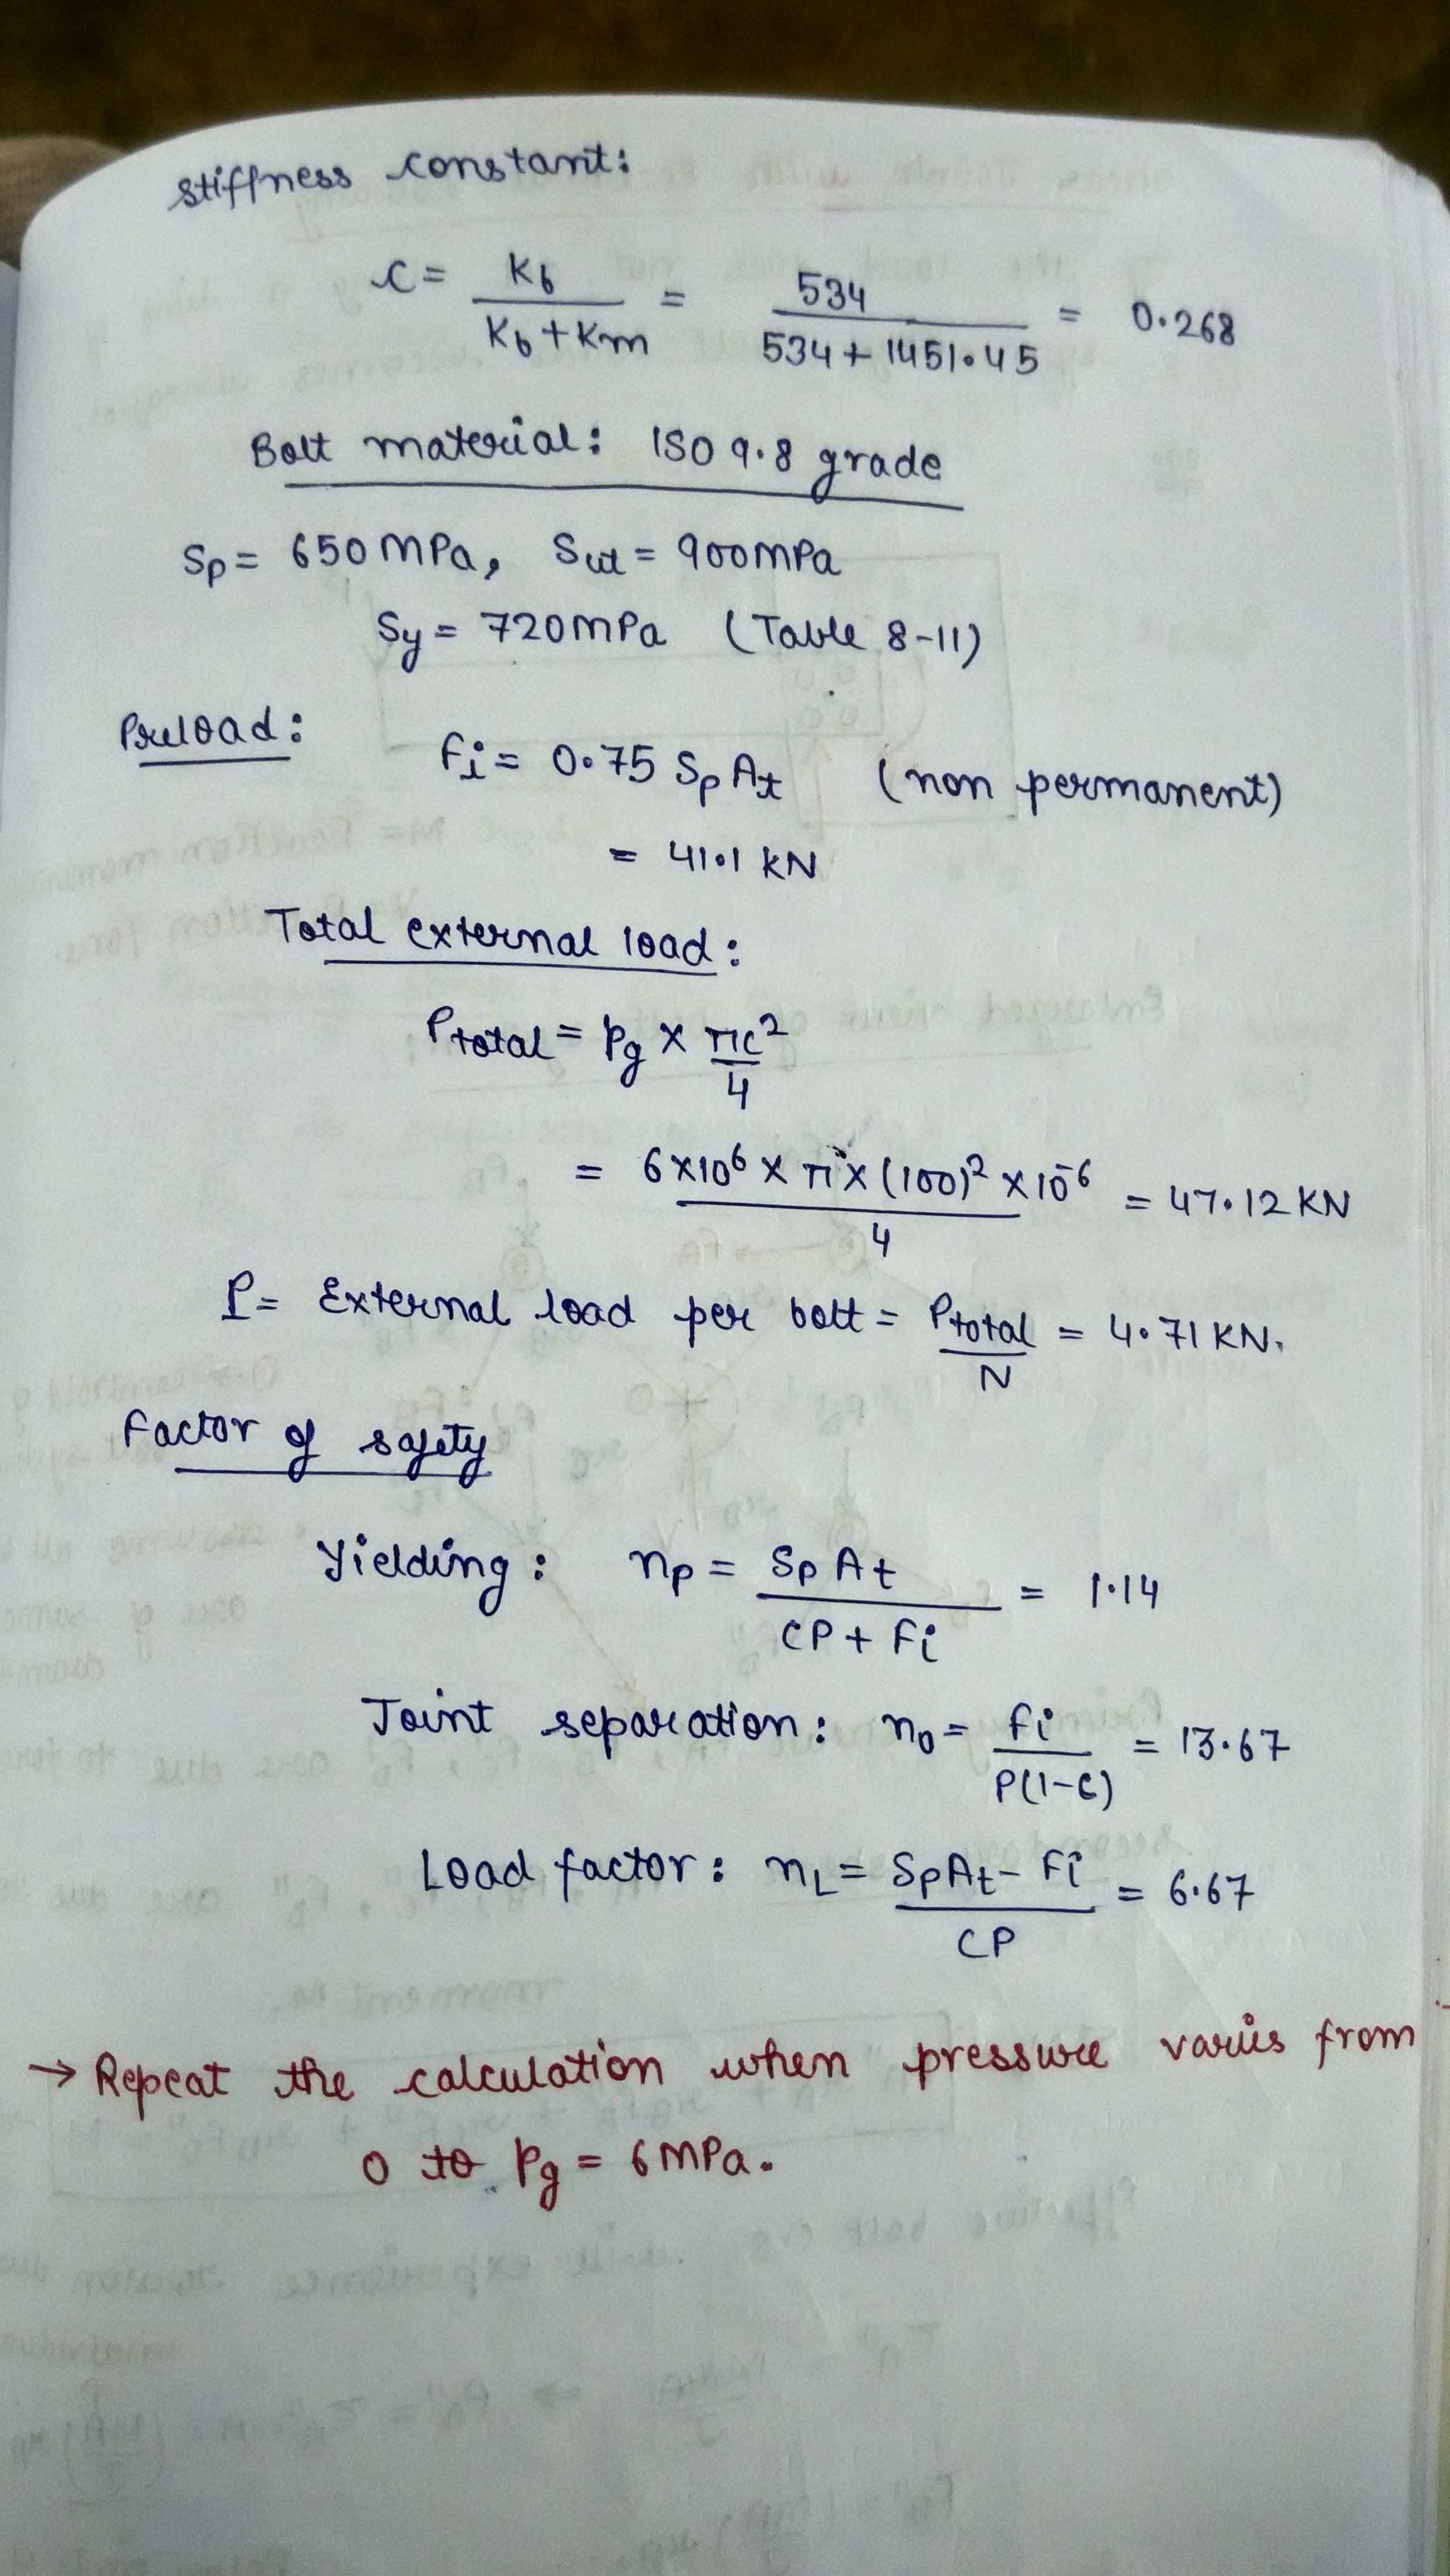 stiffness constant:
C = Kb / (Kb + Km) = 534 / (534 + 1451.45) = 0.268
Bolt material: ISO 9.8 grade
Sp = 650 MPa, Sut = 900 MPa
Sy = 720 MPa (Table 8-11)
Preload: Fi = 0.75 Sp At (non permanent)
= 41.1 KN
Total external load:
Ptotal = Pg × πc² / 4
= 6×10⁶ × π × (100)² × 10⁻⁶ / 4 = 47.12 KN
P = External load per bolt = Ptotal / N = 4.71 KN.
Factor of safety
Yielding: np = Sp At / (CP + Fi) = 1.14
Joint separation: no = Fi / P(1-C) = 13.67
Load factor: nL = (SpAt - Fi) / CP = 6.67
→ Repeat the calculation when pressure varies from
0 to Pg = 6 MPa.